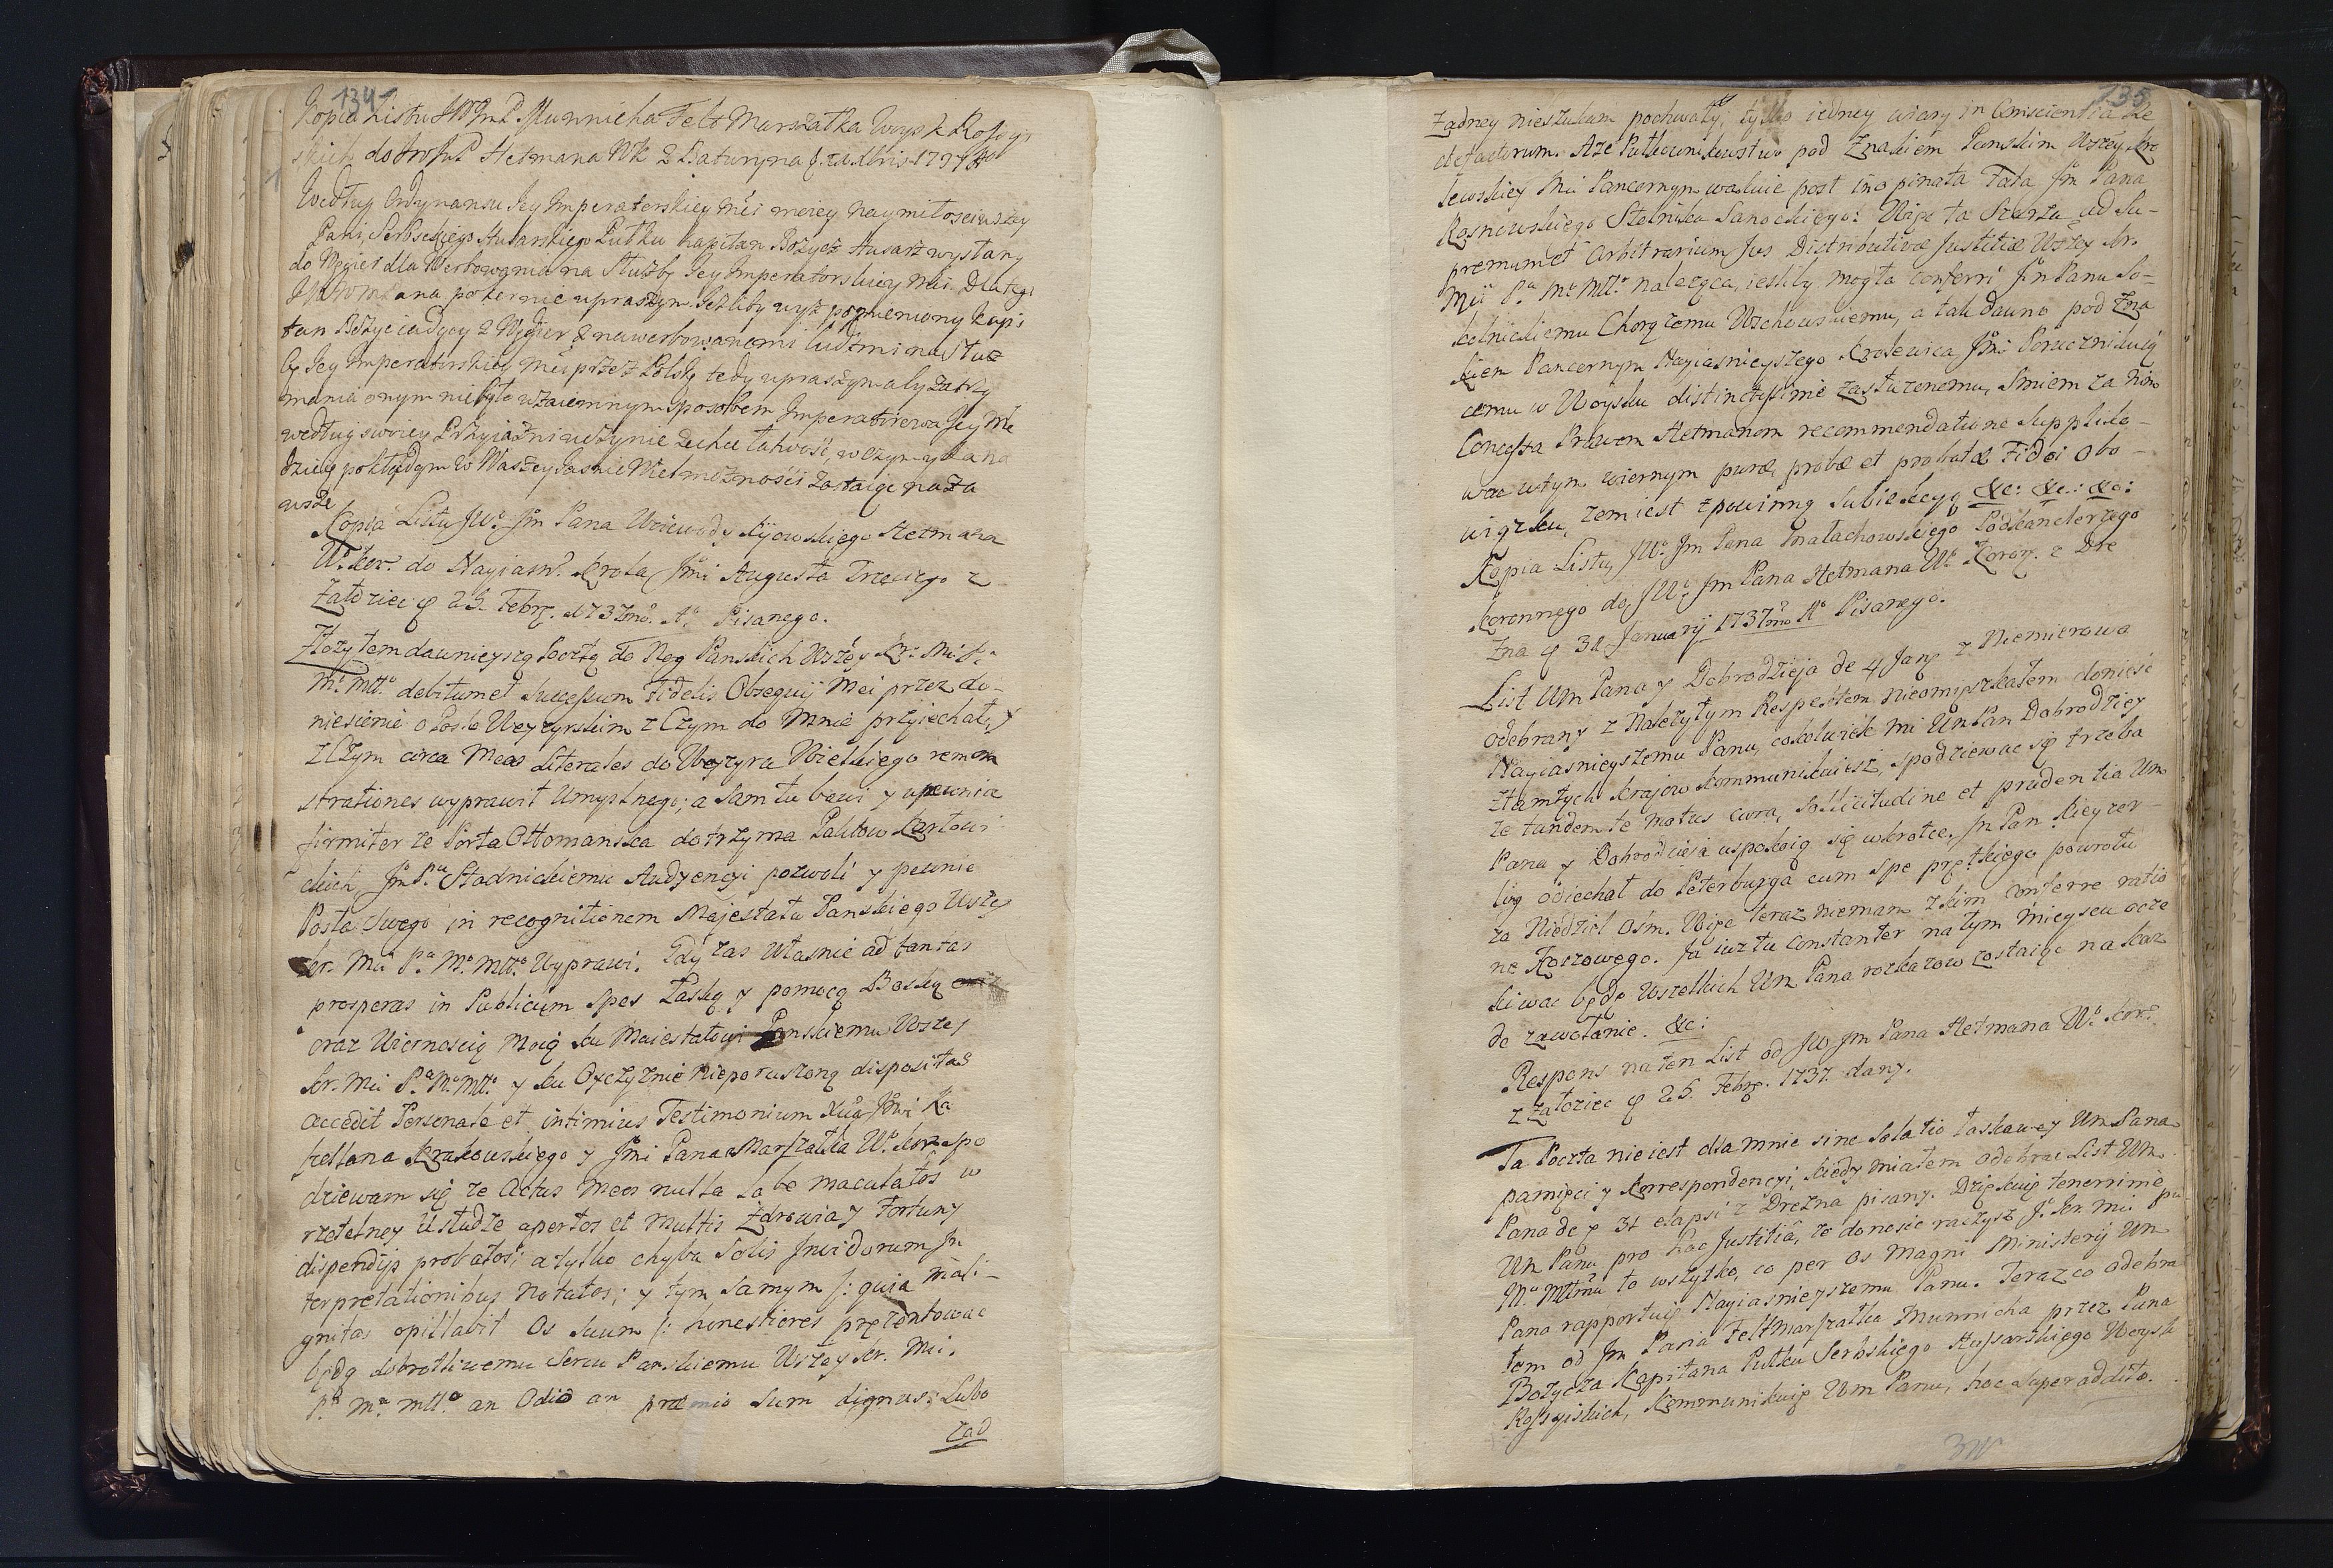 134
Kopia Listu JW Jm P. Munnicha Felt Marszałka Woysk Rossyi
skich do JW Jm P Hetmana WK z Baturyna
Według Ordynansu Jey Imperatorskiey Mci moiey naymiłosciwszey
Pani, Serbskiego Husarskiego Pułku kapitan Bożycz Husarz wysłany
do Węgier dla Werbowania na Służby Jey Imperatorskiey Mci. Dlatego
JW Wm Pana pokornie upraszym Jeżliby wyż pomieniony kapi
tan Bożyc iadący z Węgier z nawerbowanemi ludźmi na służ
by Jey Imperatorskiey Mci przez Polskę tedy upraszym aby zatrzy
mania onym niebyło wzaiemnym sposobem Imperatorowa Jey Mć
według swoiey Przyiaźni uczynić zechce łatwość, w czym y ia na
dzieię pokładam w Waszey Jasnie Wielmożności zostaiąc na za
wsze
Kopia Listu JWo Jm Pana Woiewody Kijowskiego Hetmana
Wo Kor. do Nayiasn. Krola Jmci Augusta Trzeciego z
Załoziec d 25 Febr. 1737mo Ao Pisanego.
Złożyłem dawnieyszą Pocztą do Nog Panskich Wszey Kr: Mci Pa
Mo Młło debitum et successum Fidelis Obsequij Mei przez do-
niesienie o Pośle Wezyrskim z Czym do Mnie przyiechał, y
z Czym circa Meas Literales do Wezyra Wielkiego remon
strationes wyprawił Umyślnego; a sam tu bawi y upewnia
firmiter że Porta Ottomanska dotrzyma Paktow Karłowi
ckich, Jm Pu Stadnickiemu Audyencyi pozwoli y pewnie
Posła Swego in recognitionem Majestatu Panskiego Wszey
Kr. Mci Pa Mo Młło Wyprawi. Gdy zas Własnie ad tantas
prosperas in Publicum spes Łaską y pomocą Boską
oraz Wiernoscią Moią ku Maiestatowi Panskiemu Wszey
Kr. Mci Pa Mo Młło y ku Oyczyznie Nieporuszoną dispositas
accedit Personale et intimius Testimonium Xcia Jmci Ka
sztellana Krakowskiego y Jmci Pana Marszałka Wo Kor. spo
dziewam się że Actus Meos nulla labe maculatos w
rzetelney Usłudze apertos et Multis Zdrowia y Fortuny
dispendijs probatos; a tylko chyba Solis Invidorum In
terpretationibus Notatos; y tym samym /: quia Mali-
gnitas opillabit Os suum :/ honestiores prezentować
będę dobrotliwemu Sercu Panskiemu Wszey Kr. Mci.
Pa Mo Młło an Odio an præmio sum dignus; Lubo
żad
135
Żadney nieszukam pochwały, tylko iedney wiary in Conscientia be
nefactorum. Aże Pułkownikowstwo pod Znakiem Panskim Wszey Kro
lewskiey Mci Pancernym wakuie post inopinata Fata Jm Pana
Rosnowskiego Stolnika Sanockiego: Więc ta Szarża ad Su-
premum et Arbitrarium Jus Distributivæ Justitiæ Wszey Kr.
Mci Pa Mo Młło należąca, iesliby mogła conferri Jm Panu So-
kolnickiemu Chorążemu Wschowskiemu, a tak dawno pod Zna
kiem Pancernym Nayiasnieyszego Krolewica Jmci Porucznikuią
cemu w Woysku distinctissime zasłużonemu, smiem za nim
Concessa Prawem Hetmanom recommendatione supplico-
wać w tym wiernym puræ, probæ et probatæ Fidei Obo-
wiązku, żem iest z powinną Subiekcyą &c: &c: &c:
Kopia Listu JWo Jm Pana Małachowskiego Podkanclerzego
Koronnego do JWo Jm Pana Hetmana Wo Koron. z Dre
zna d 31 Januarij 1737mo Ao Pisanego.
List Wm Pana y Dobrodzieja de 4 Jan. z Niemierowa
odebrany z Należytym Respektem nieomieszkałem donieść
Nayiasnieyszemu Panu, cokolwiek mi Wm Pan Dobrodziey
ztamtych Kraiow Kommunikuiesz, spodziewac się trzeba
że tandem te motus cura, sollicitudine et prudentia Wm
Pana y Dobrodzieia uspokoią się wkrotce. Jm Pan Kieyzer-
ling odiechał do Peterburga cum spe prętkiego powrotu
za Niedziel Osm. Więc teraz niemam z kim conferre ratio
ne Koszowego. Ja iuz tu constanter na tym mieyscu ocze
kiwac będę Wszelkich Wm Pana rozkazow zostaiąc na każ
de zawołanie. &c:
Respons na ten List od JW Jm Pana Hetmana Wo Kor.
z Załoziec d 25. Febr. 1737. dany.
Ta Poczta nieiest dla mnie sine solatio łaskawey Wm Pana
pamięci y Korrespondencyi, kiedy miałem odebrac List Wm
Pana de d 31 elapsi z Drezna pisany. Dziękuię tenerrime
Wm Panu pro hac Justitiâ, że donosic raczysz J. Kr. Mci Pu
Mu Młłmu to wszytko, co per Os Magni Ministerij Wm
Pana rapportuię Nayiasnieyszemu Panu. Teraz co odebra
łem od Jm Pana Felt Marszałka Munnicha przez Pana
Bożycza Kapitana Pułku Serbskiego Hussarskiego Woysk
Rossyiskich, Kommunikuię Wm Panu, hoc superaddito.